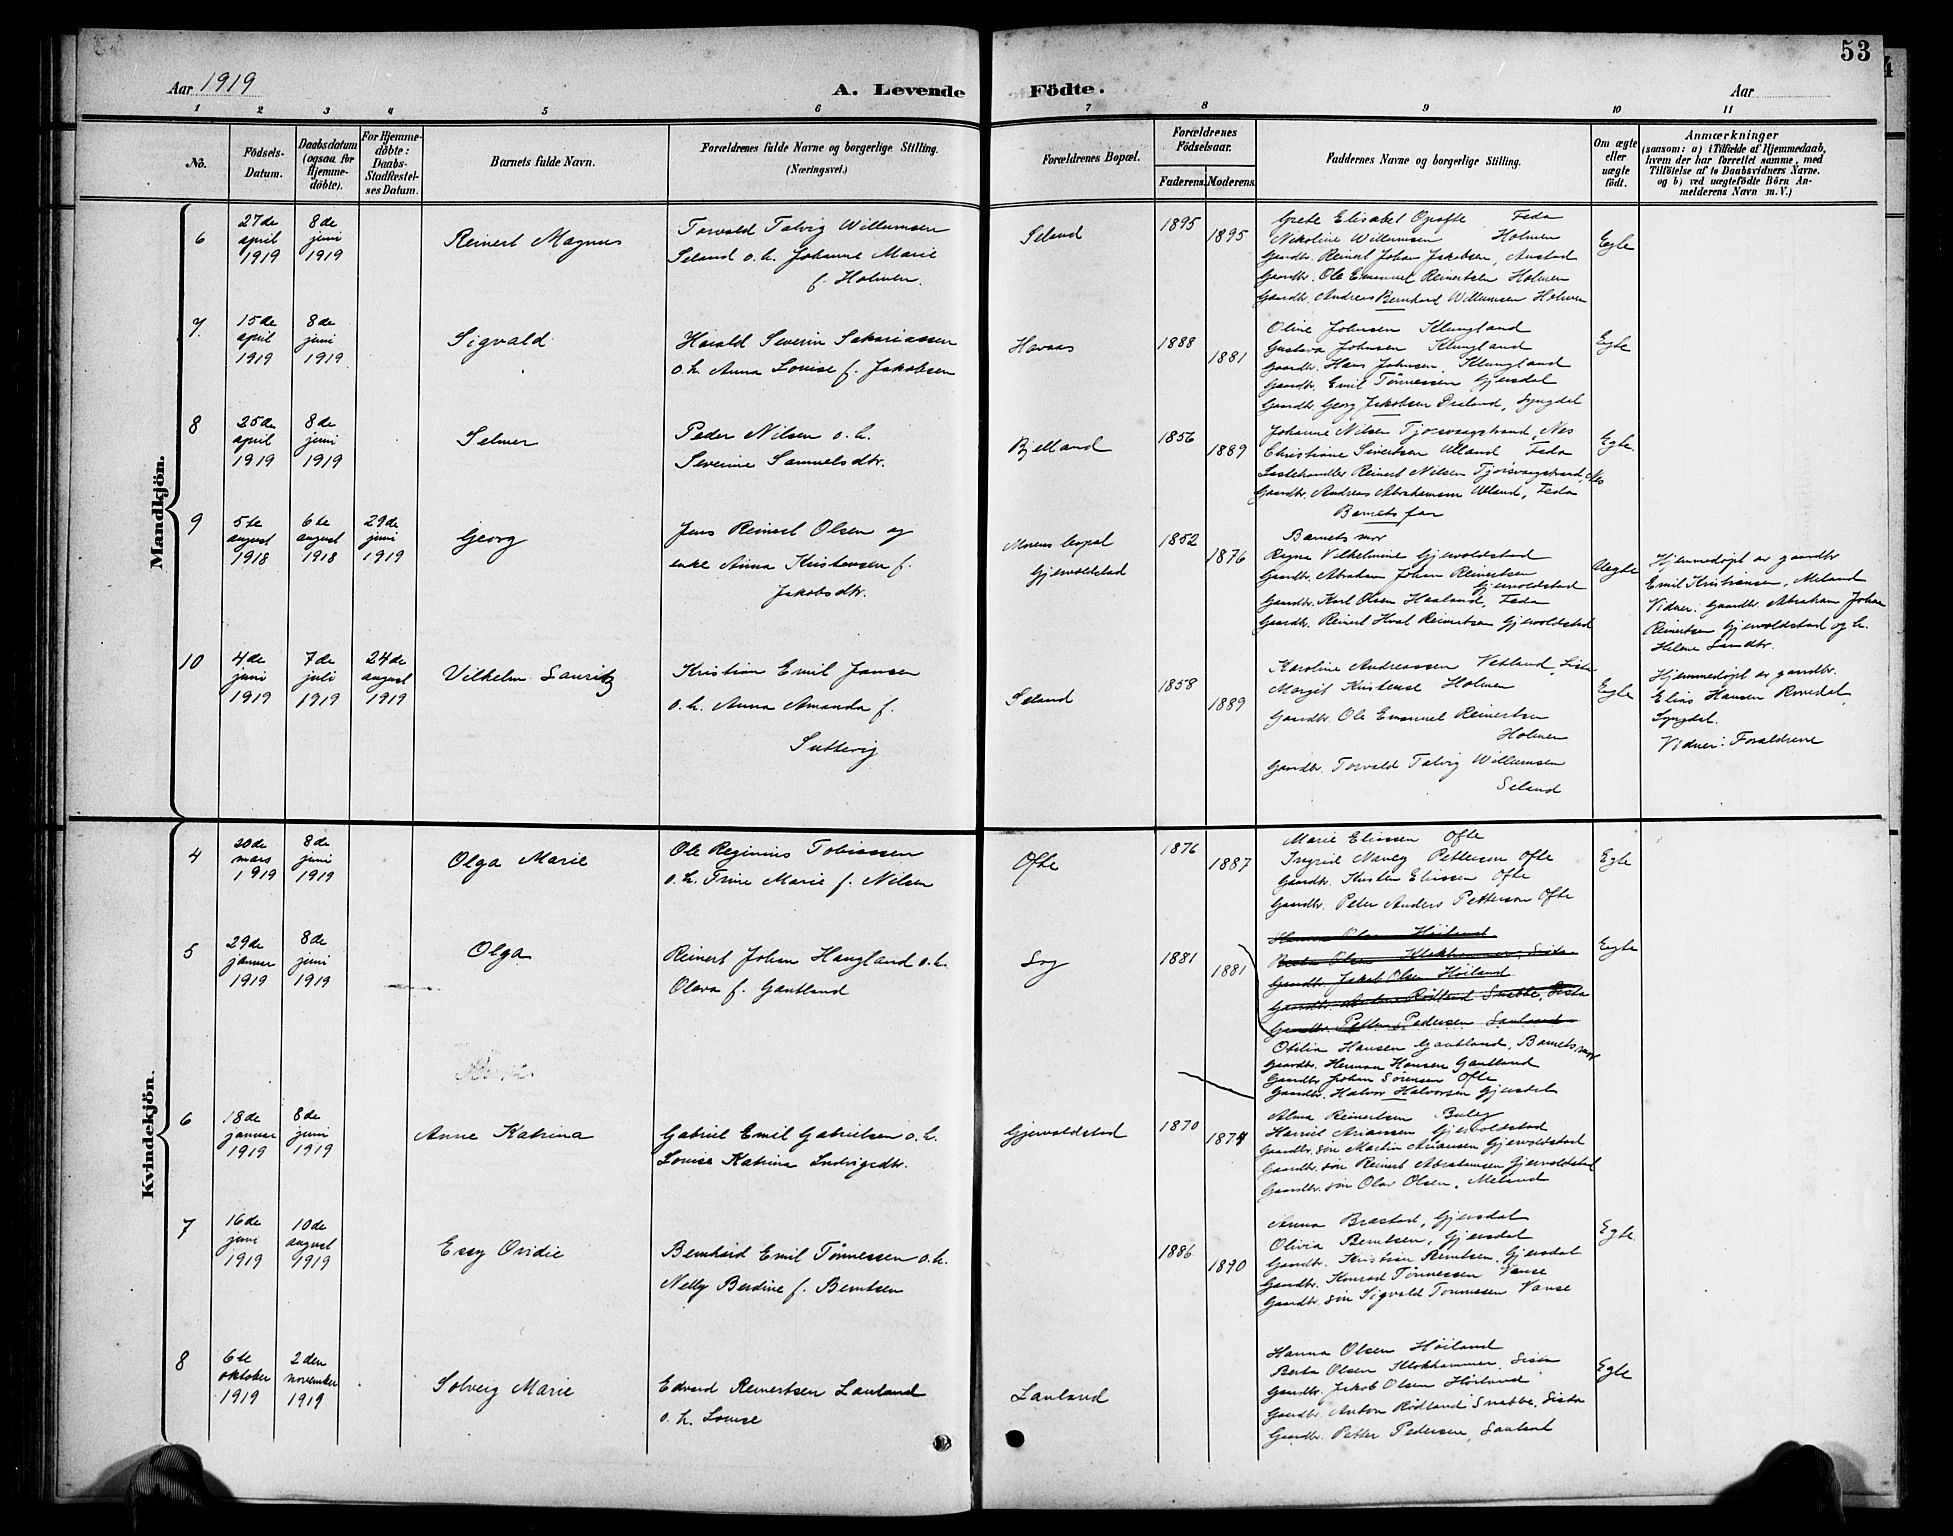 53
Aar 1919
A. Levende Födte.
Aar
1 2 3 4 5 6 7 8 9 10 11
Nô.
Födsels-Datum.
Daabsdatum (ogsaa for Hjemme-döbte).
For Hjemme-döbte: Daabs-Stadfæstel-ses Datum.
Barnets fulde Navn.
Forældrenes fulde Navne og borgerlige Stilling.
(Næringsvei.)
Forældrenes Bopæl.
Forældrenes Födselsaar.
Faderens. Moderens.
Faddernes Navne og borgerlige Stilling.
Om ægte eller uægte födt.
Anmærkninger
(saasom: a) i Tilfælde af Hjemmedaab,
hvem der har forrettet samme, med
Tilföielse af to Daabsvidners Navne.
og b) ved uægtefödte Börn An-
melderens Navn m. V.)
Mandkjön.
6
27de april 1919
8de juni 1919
Reinert Magnus
Torvald Talvig Willumsen
Seland o. h. Johanne Marie
f. Holmen.
Seland
1895
1895
Grete Elisabet Opofte Feda
Nikoline Willumsen Holmen
Gaardbr. Reinert Johan Jakobsen, Austad
Gaardbr. Ole Emanuel Reinertsen Holmen
Gaardbr. Andreas Bernhard Willumsen Holmen
Egte
7.
15de april 1919
8de juni 1919
Sigvald
Harald Severin Sakariassen
o. h. Anna Louise f. Jakobsen
Havaas
1888
1881
Oline Johnsen Klungland
Gustava Johnsen Klungland
Gaardbr. Hans Johnsen, Klungland
Gaardbr. Emil Tønnessen Gjersdal
Gaardbr. Georg Jakobsen Øraland, Lyngdal
Egte
8
25de april 1919
8de juni 1919
Selmer
Peder Nilsen o. h.
Severine Samuelsdtr.
Bjelland
1856
1889
Johanne Nilsen Tjorsvagstrand, Nes
Christiane Sivertsen Ulland, Feda
Lastehandler Reinert Nilsen Tjorsvagstrand, Nes
Gaardbr. Andreas Abrahamsen Ulland, Feda
Barnets far
Egte.
9
5te august 1918
6te august 1918
29de juni 1919
Georg
Jens Reinert Olsen og
enke Anna Kristensen f.
Jakobsdtr.
Morens bopal
Gjervoldstad
1852
1876
Barnets mor
Regna Vilhelmine Gjervoldstad
Gaardbr. Abraham Johan Reinertsen
Gjervoldstad
Gaardbr. Karl Olsen Haaland, Feda
Gaardbr. Reinert Hval Reinertsen Gjervoldstad
Uegte
Hjemmedøpt av gaardbr
Emil Kristensen, Meland
Vidner: Gaardbr. Abraham Johan
Reinertsen Gjervoldstad og h.
Helene Larsdtr.
10
4de juni 1919
7de juli 1919
24de august 1919
Vilhelm Lauritz
Kristian Emil Jansen
o. h. Anna Amanda f.
Sæltevig
Seland
1858
1889
Karoline Andreassen Vatland, Lista
Margit Kristense Holmen
Gaardbr. Ole Emanuel Reinertsen
Holmen
Gaardbr. Torvald Talvig Willumsen
Seland
Egte
Hjemmedøpt av gaardbr.
Elias Hansen Rovedal,
Lyngdal.
Vidner: Forældrene
Kvindekjön.
4
20de mars 1919
8de juni 1919
Olga Marie
Ole Reginius Tobiassen
o. h. Trine Marie f. Nilsen
Ofte
1876
1887
Marie Eliassen Ofte
Ingrid Nanley Petterson Ofte
Gaardbr. Kristen Eliassen Ofte
Gaardbr. Peter Anders Petterson Ofte
Egte
5
29de januar 1919
8de juni 1919
Olga
Reinert Johan Haugland o. h.
Olava f. Gautland
Log
1881
1881
Hanna Olsen Høiland
Berta Olsen Klokhammer, Lista
Gaardbr. Jakob Olsen Høiland
Gaardbr. Anton Rødland Snabbe, Lista
Gaardbr. Petter Pedersen Lauland
Otilia Hansen Gautland, Barnets mor
Gaardbr. Herman Hansen Gautland
Gaardbr. Johan Sørensen Ofte
Gaardbr. Halvor Halvorsen Gjersdal
Egte
6
18de januar 1919
8de juni 1919
Anne Katrina
Gabriel Emil Gabrielsen o. h.
Louise Katrina Ludvigsdtr.
Gjervoldstad
1870
1874
Alma Reinertsen Buley
Harriet Ariansen Gjervoldstad
Gaardbr. søn Martin Ariansen Gjervoldstad
Gaardbr. søn Reinert Abrahamsen Gjervoldstad
Gaardbr. søn Olav Olsen, Meland
7
16de juni 1919
10de august 1919
Essy Ovidie
Bernhard Emil Tønnessen o. h.
Nelly Berdine f. Berntsen
1886
1890
Anna Brastad, Gjersdal
Olivia Berntsen, Gjersdal
Gaardbr. Kristian Berntsen, Gjersdal
Gaardbr. Konrad Tønnessen Vanse
Gaardbr. søn Sigvald Tønnessen Vanse
Egte
8
6te oktober 1919
2den november 1919
Solveig Marie
Edvard Reinertsen Lauland
o. h. Louise
Lauland
Hanna Olsen Høiland
Berta Olsen Klokhammer, Lista
Gaardbr. Jakob Olsen Høiland
Gaardbr. Anton Rødland Snabbe, Lista
Gaardbr. Petter Pedersen, Lauland
Egte